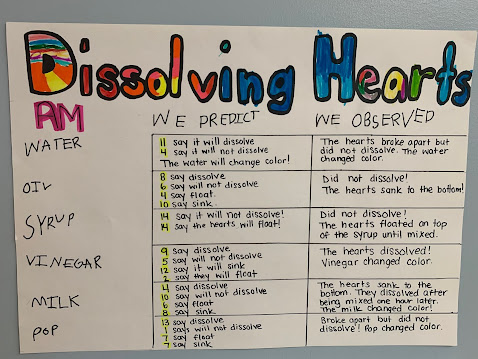 Dissolving Hearts
AM
WE PREDICT
WE OBSERVED
WATER
11 say it will dissolve
4 say it will not dissolve
The water will change color!
The hearts broke apart but
did not dissolve. The water
changed color.
OIL
8 say dissolve
6 say will not dissolve
4 say float
10 say sink
Did not dissolve!
The hearts sank to the bottom!
SYRUP
14 say it will not dissolve!
14 say the hearts will float!
Did not dissolve!
The hearts floated on top
of the syrup until mixed.
VINEGAR
9 say dissolve
5 say will not dissolve
12 say it will sink
2 say they will float
The hearts dissolved!
Vinegar changed color.
MILK
4 say dissolve
10 say will not dissolve
6 say float
8 say sink
The hearts sank to the
bottom. They dissolved after
being mixed one hour later.
The milk changed color!
POP
13 say dissolve
1 says will not dissolve
7 say float
7 say sink
Broke apart but did not
dissolve! Pop changed color.